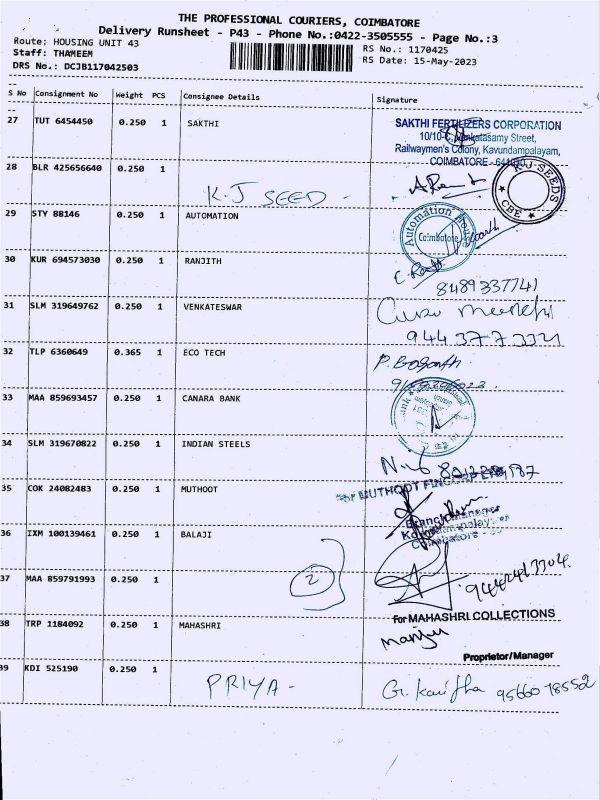 THE PROFESSIONAL COURIERS, COIMBATORE
Delivery Runsheet - P43 - Phone No.:0422-3505555 - Page No.:3
Route: HOUSING UNIT 43
RS No.: 1170425
Staff: THAMEEM
RS Date: 15-May-2023
DRS No.: DCJB117042503
S No Consignment No Weight PCS Consignee Details Signature
27 TUT 6454450 0.250 1 SAKTHI
SAKTHI FERTILIZERS CORPORATION
10/10-C, Street,
Railwaymen's Colony, Kavundampalayam,
COIMBATORE - 641
28 BLR 425656640 0.250 1 K.J SEED -
K.J. SEEDS
CBE
29 STY 88146 0.250 1 AUTOMATION
Automation
Coimbatore
30 KUR 694573030 0.250 1 RANJITH
8489337741
31 SLM 319649762 0.250 1 VENKATESWAR
944 377 3321
32 TLP 6360649 0.365 1 ECO TECH
33 MAA 859693457 0.250 1 CANARA BANK
34 SLM 319670822 0.250 1 INDIAN STEELS
35 COK 24082483 0.250 1 MUTHOOT
MUTHOOT
Branch Manager
Coimbatore
36 IXM 100139461 0.250 1 BALAJI
2
37 MAA 859791993 0.250 1
For MAHASHRI COLLECTIONS
38 TRP 1184092 0.250 1 MAHASHRI
Manju
Proprietor/Manager
39 KDI 525190 0.250 1 PRIYA -
G. 9566078552